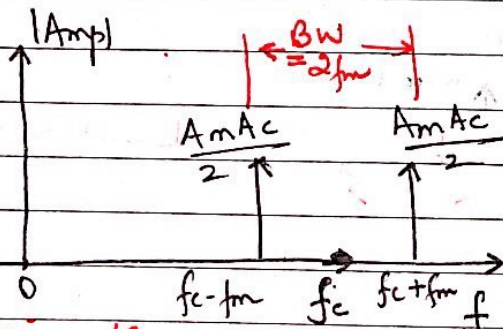 |Amp|
BW
= 2fm
AmAc
2
AmAc
2
0
fc-fm
fc
fc+fm
f